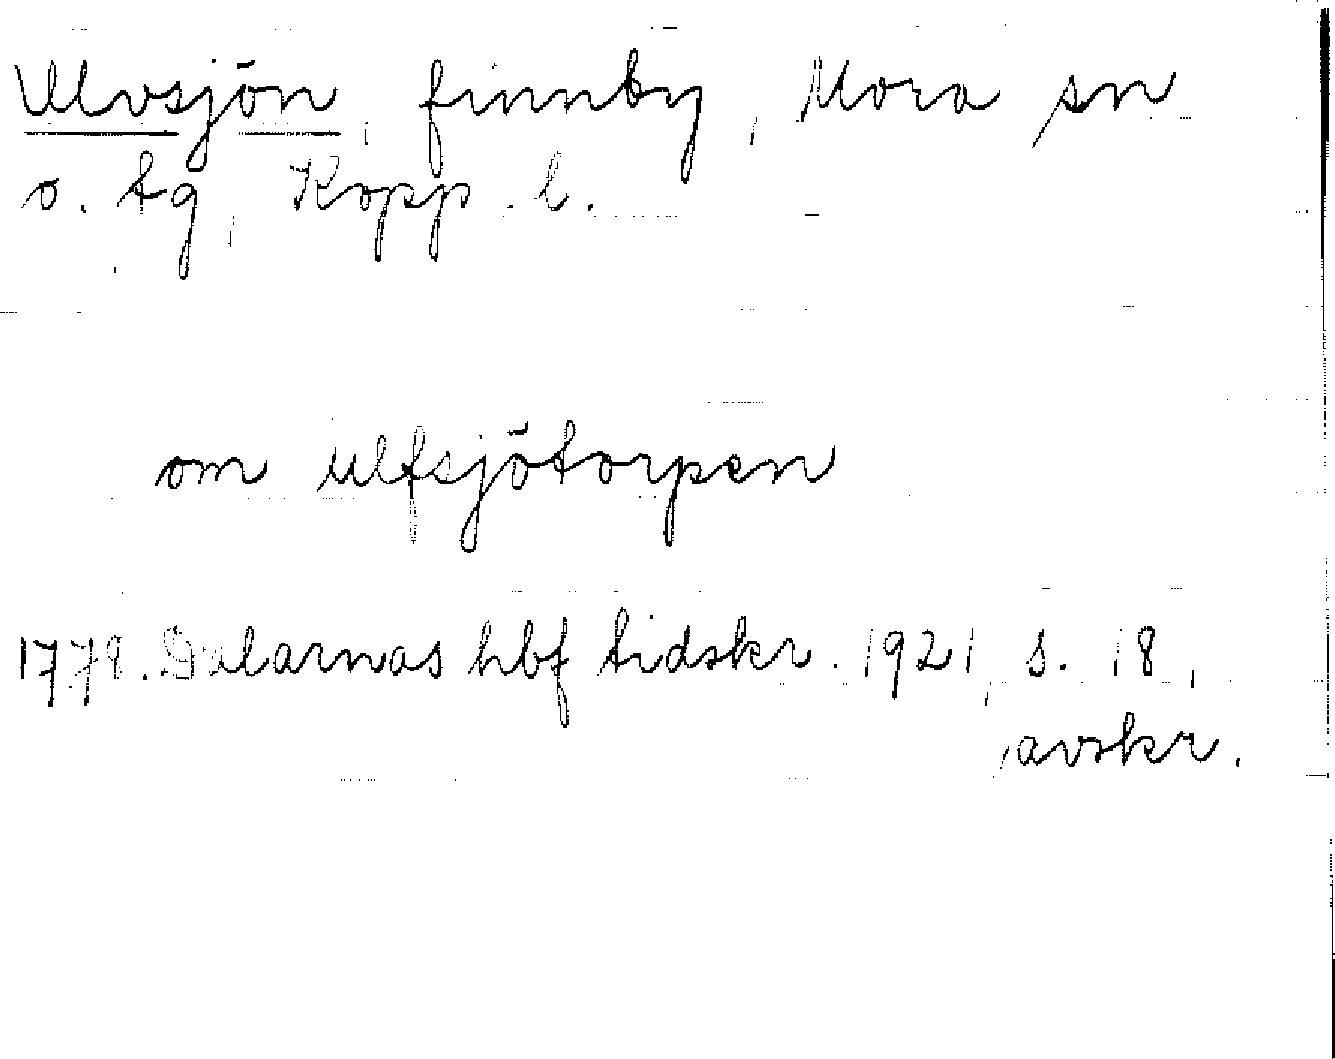 Ulvsjön, finnby, Mora sn
o. tg, Kopp. l.
om Ulfsjötorpen
1778. Dalarnas hbf tidskr. 1921, s. 18,
avskr.